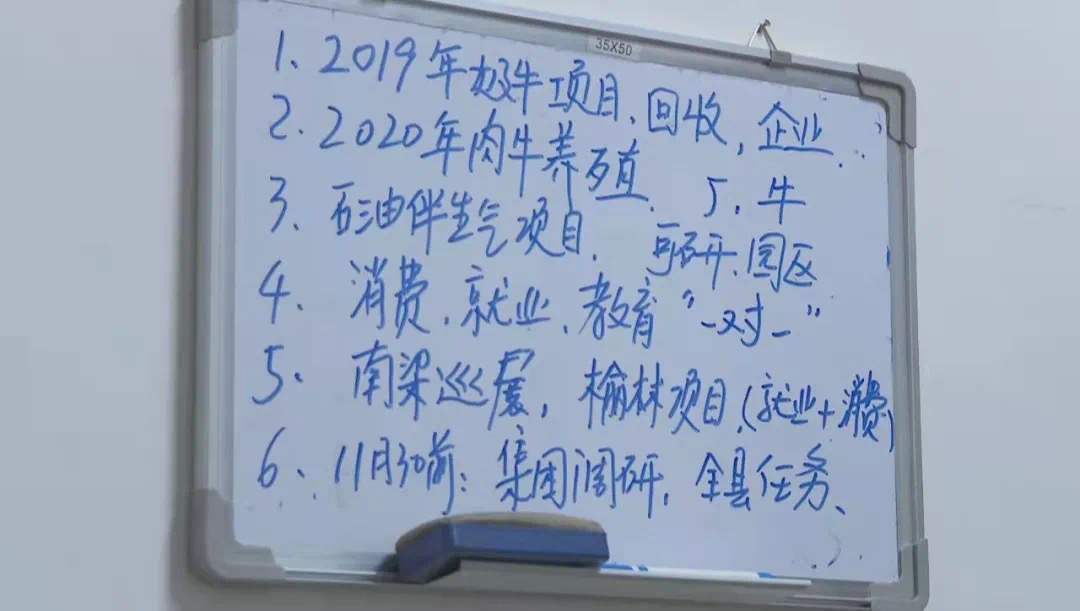 35X50
1、2019年奶牛项目、回收,企业
2、2020年肉牛养殖、 厂、牛
3、石油伴生气项目、 可研、园区
4、消费、就业、教育“一对一”
5、南梁巡展,榆林项目、(就业+消费)
6、11月30前:集团调研,全县任务、